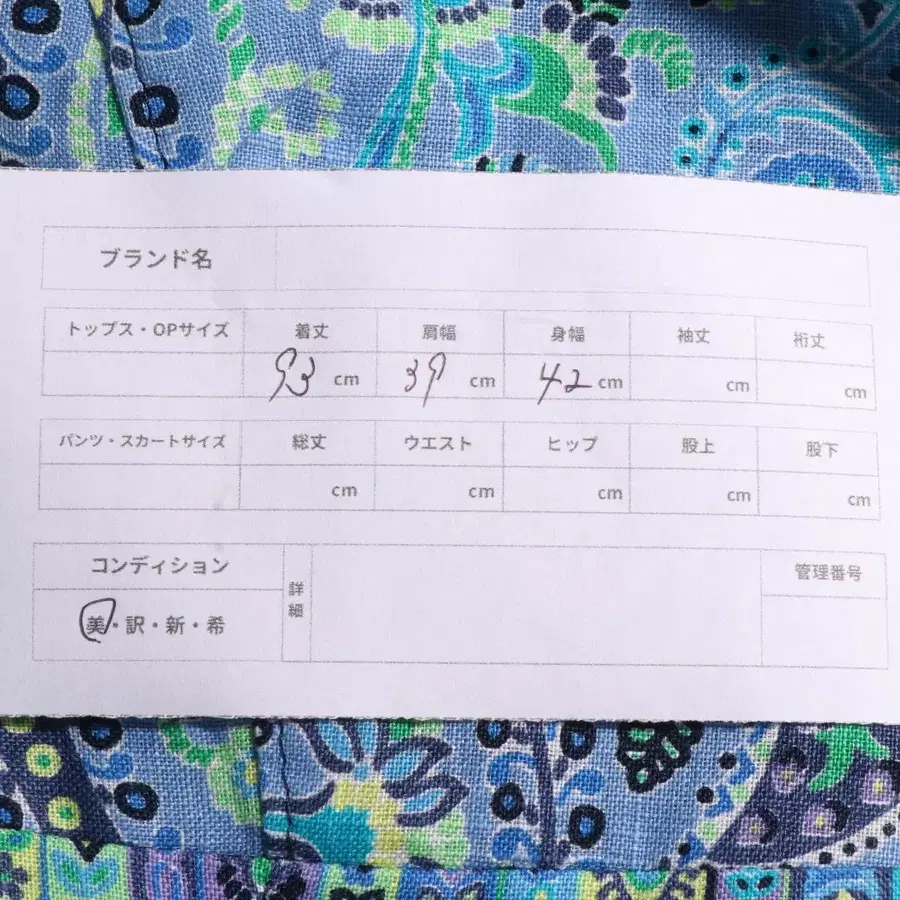 ブランド名
トップス・OPサイズ 着丈 肩幅 身幅 袖丈 裄丈
93 cm 39 cm 42 cm cm cm
パンツ・スカートサイズ 総丈 ウエスト ヒップ 股上 股下
cm cm cm cm cm
コンディション 詳細 管理番号
美・訳・新・希